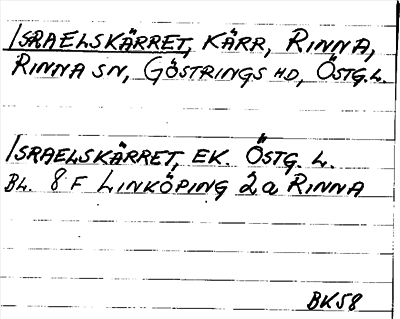 ISRAELSKÄRRET, KÄRR, RINNA,
RINNA SN, GÖSTRINGS HD, ÖSTG.L.
ISRAELSKÄRRET, EK. ÖSTG. L.
BL. 8 F LINKÖPING 2a RINNA
BK58